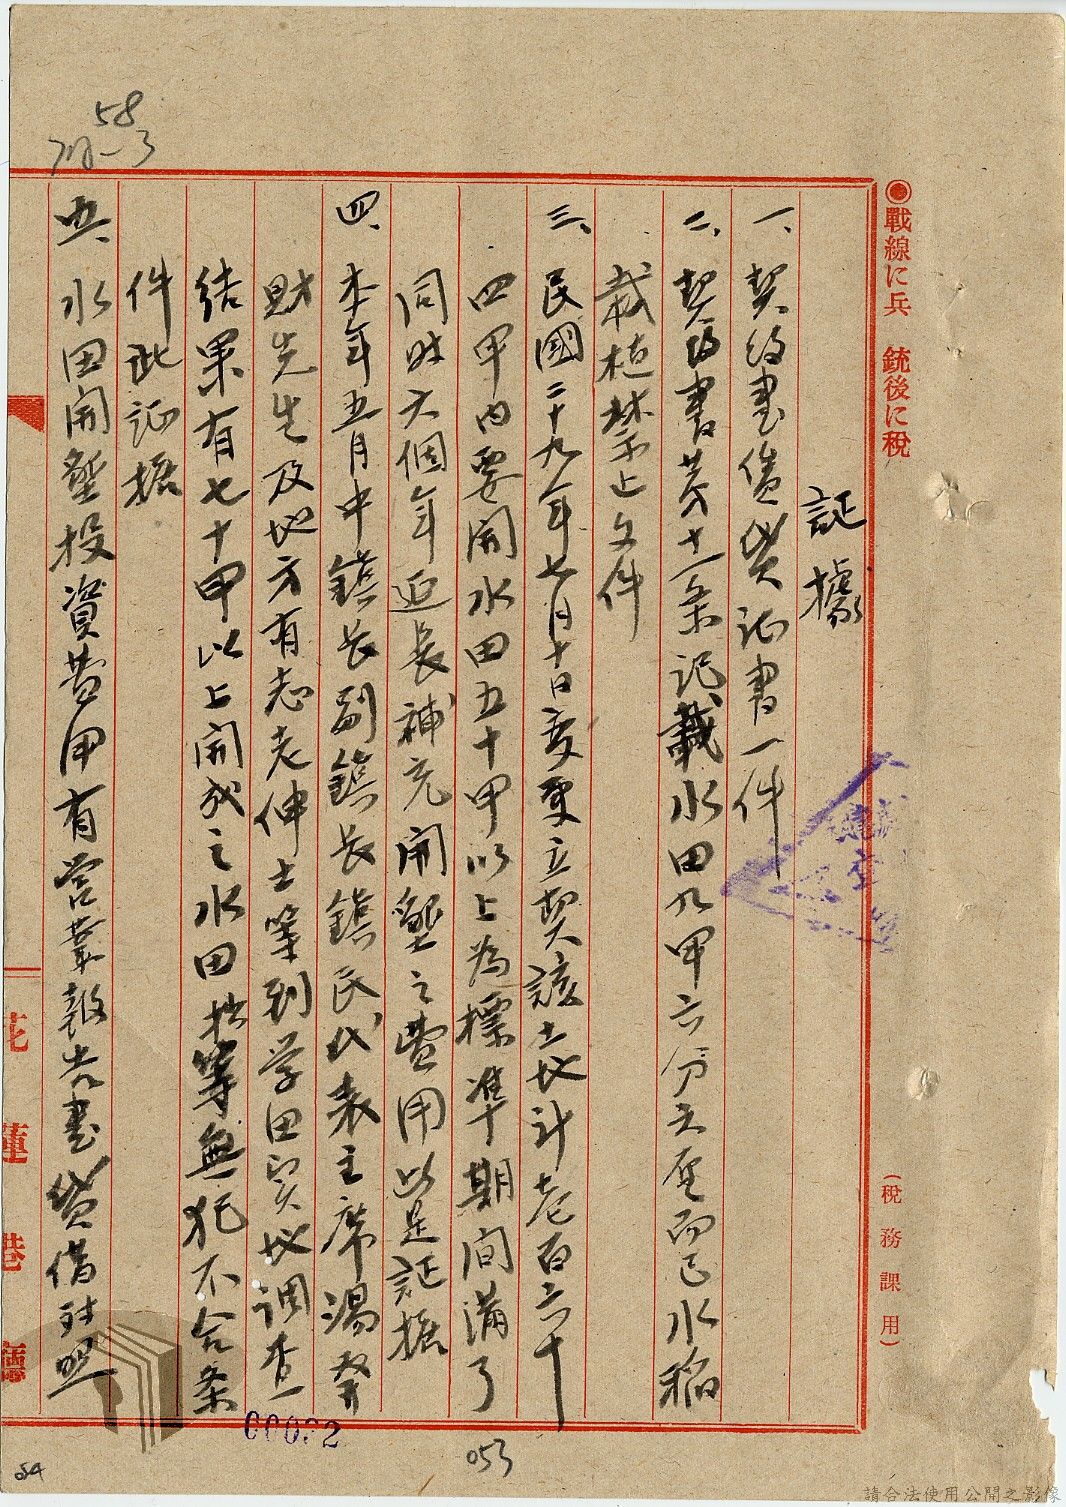 ●戰線に兵　銃後に稅
(稅務課用)
証據
一、契約書賃貸証書一件
二、契約書第十一条記載水田九甲六分六厘而已水稲
栽植禁止文件
三、民國二十九年七月十日变更立契該土地計老百六十
四甲内要開水田五十甲以上為標準期间满了
同時六個年延長補充開墾之費用以是証據
四、本年五月中鎮長副鎮長鎮民代表主席湯
財先生及地方有志老伸士等到学田实地調查
結果有七十甲以上開成之水田 等無犯不合条
件此証据
五、水田開墾投資費用有营業報告書貸借対照
花蓮港廳
58
00032
053
054
請合法使用公開之影像